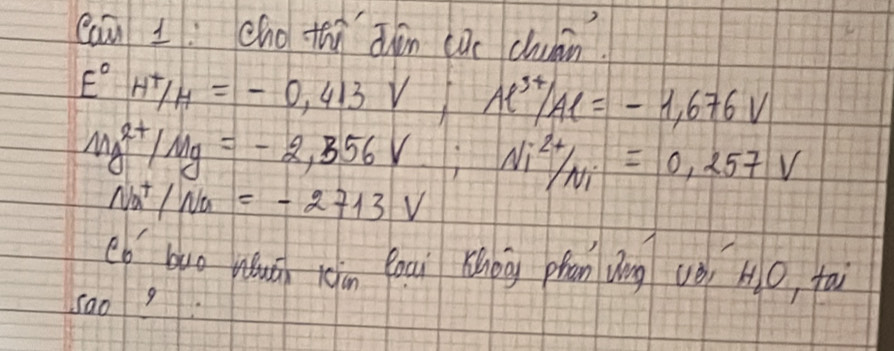 Câu 1: Cho thế điện cực chuẩn.
E° H⁺/H = - 0,413 V ; Al³⁺/Al = - 1,676 V
Mg²⁺/Mg = - 2,356 V ; Ni²⁺/Ni = 0,257 V
Na⁺/Na = - 2713 V
Có bao nhiêu kim loại không phản ứng với H₂O, tại
sao ?